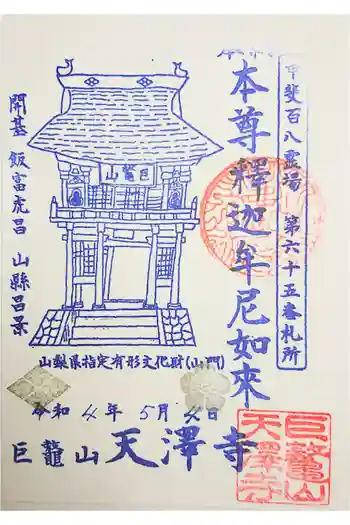 甲斐百八霊場 第六十五番札所
本尊釋迦牟尼如來
開基 飯富虎昌 山縣昌景
巨鼇山
山梨県指定有形文化財(山門)
令和4年5月4日
巨鼇山天澤寺
巨鼇山
天澤寺